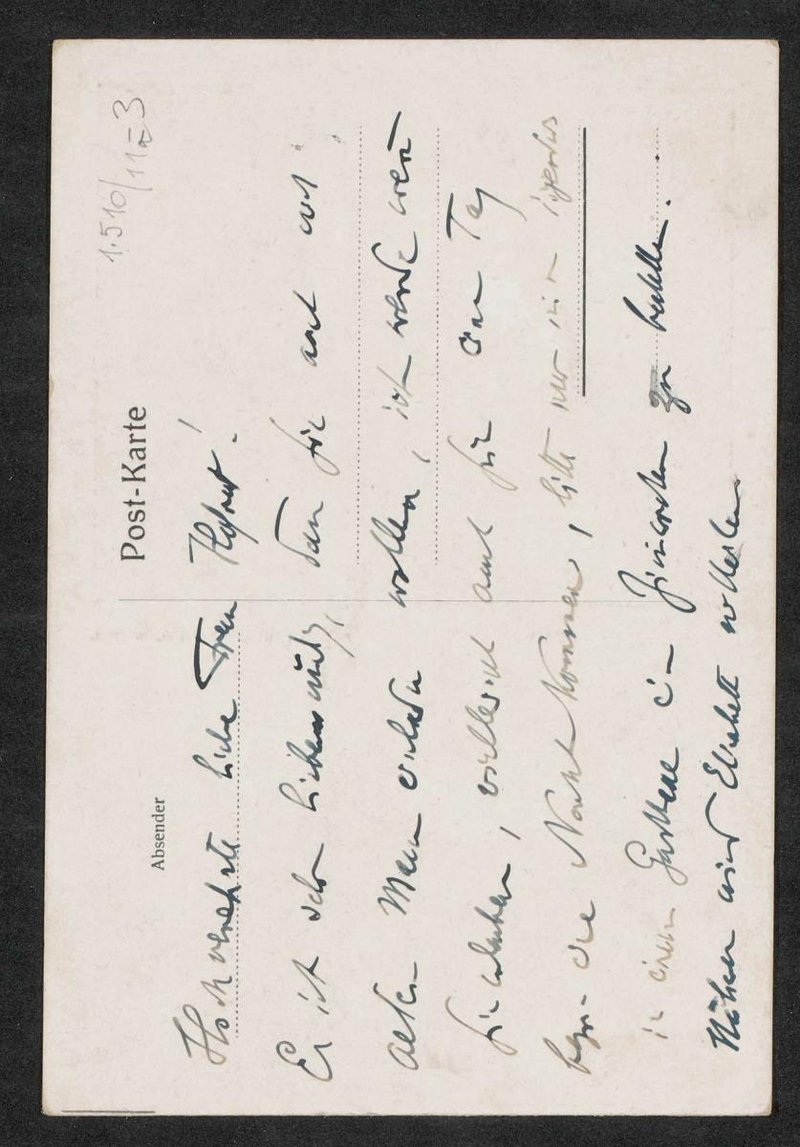 1.510/11=3
Post-Karte
Absender
Hochverehrte liebe Frau Hofrat!
Es ist sehr liebenswürdig, dass Sie auch mich
alten Mann einladen wollen, ich werde wenn
Sie erlauben, vielleicht auch für einen Tag
die Nacht kommen, bitte mir nur ein irgendwo
in einem Gasthause ein Zimmerchen zu bestellen.
Näheres wird Elisabeth mitteilen.